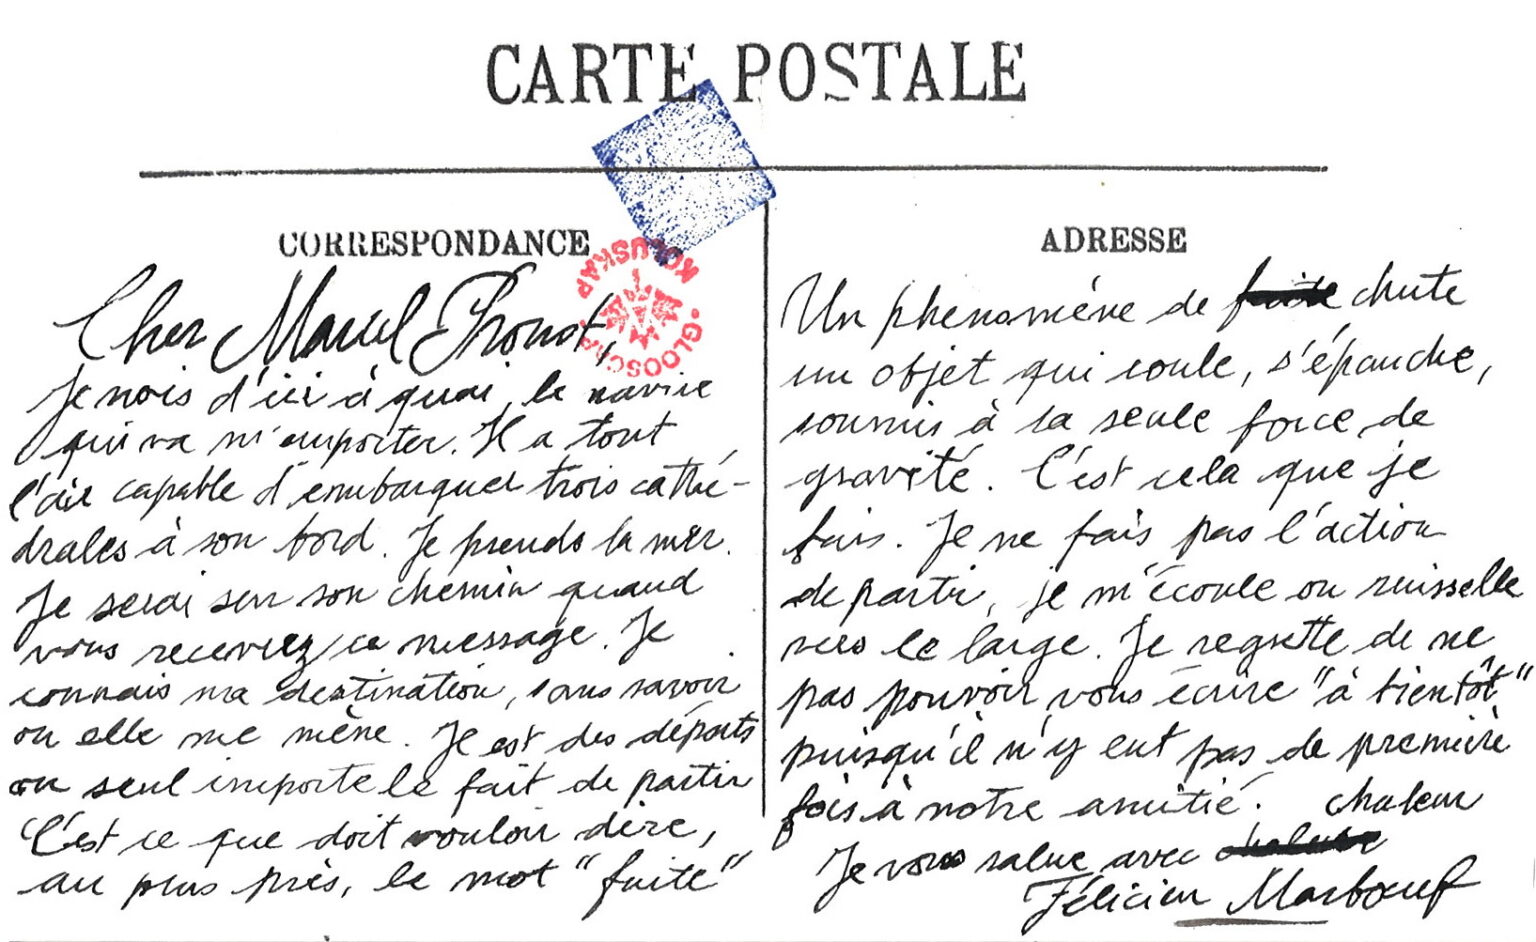 CARTE POSTALE
CORRESPONDANCE
GLOOSCAP KOLUSKAP
Cher Marcel Proust,
Je vois d'ici à quai, le navire
qui va m'emporter. Il a tout
l'air capable d'embarquer trois cathé-
drales à son bord. Je prends la mer.
Je serai sur son chemin quand
vous recevrez ce message. Je
connais ma destination, sans savoir
ou elle me mène. Je est des départs
ou seul importe le fait de partir
C'est ce que doit vouloir dire,
au plus près, le mot "fuite"
ADRESSE
Un phenomène de fuite chute
un objet qui coule, s'épanche,
soumis à sa seule force de
gravité. C'est cela que je
fais. Je ne fais pas l'action
de partir, je m'écoule ou ruisselle
vers le large. Je regrette de ne
pas pouvoir vous écrire "à bientôt"
puisqu'il n'y eut pas de première
fois à notre amitié. chaleur
Je vous salue avec
Félicien Marboeuf